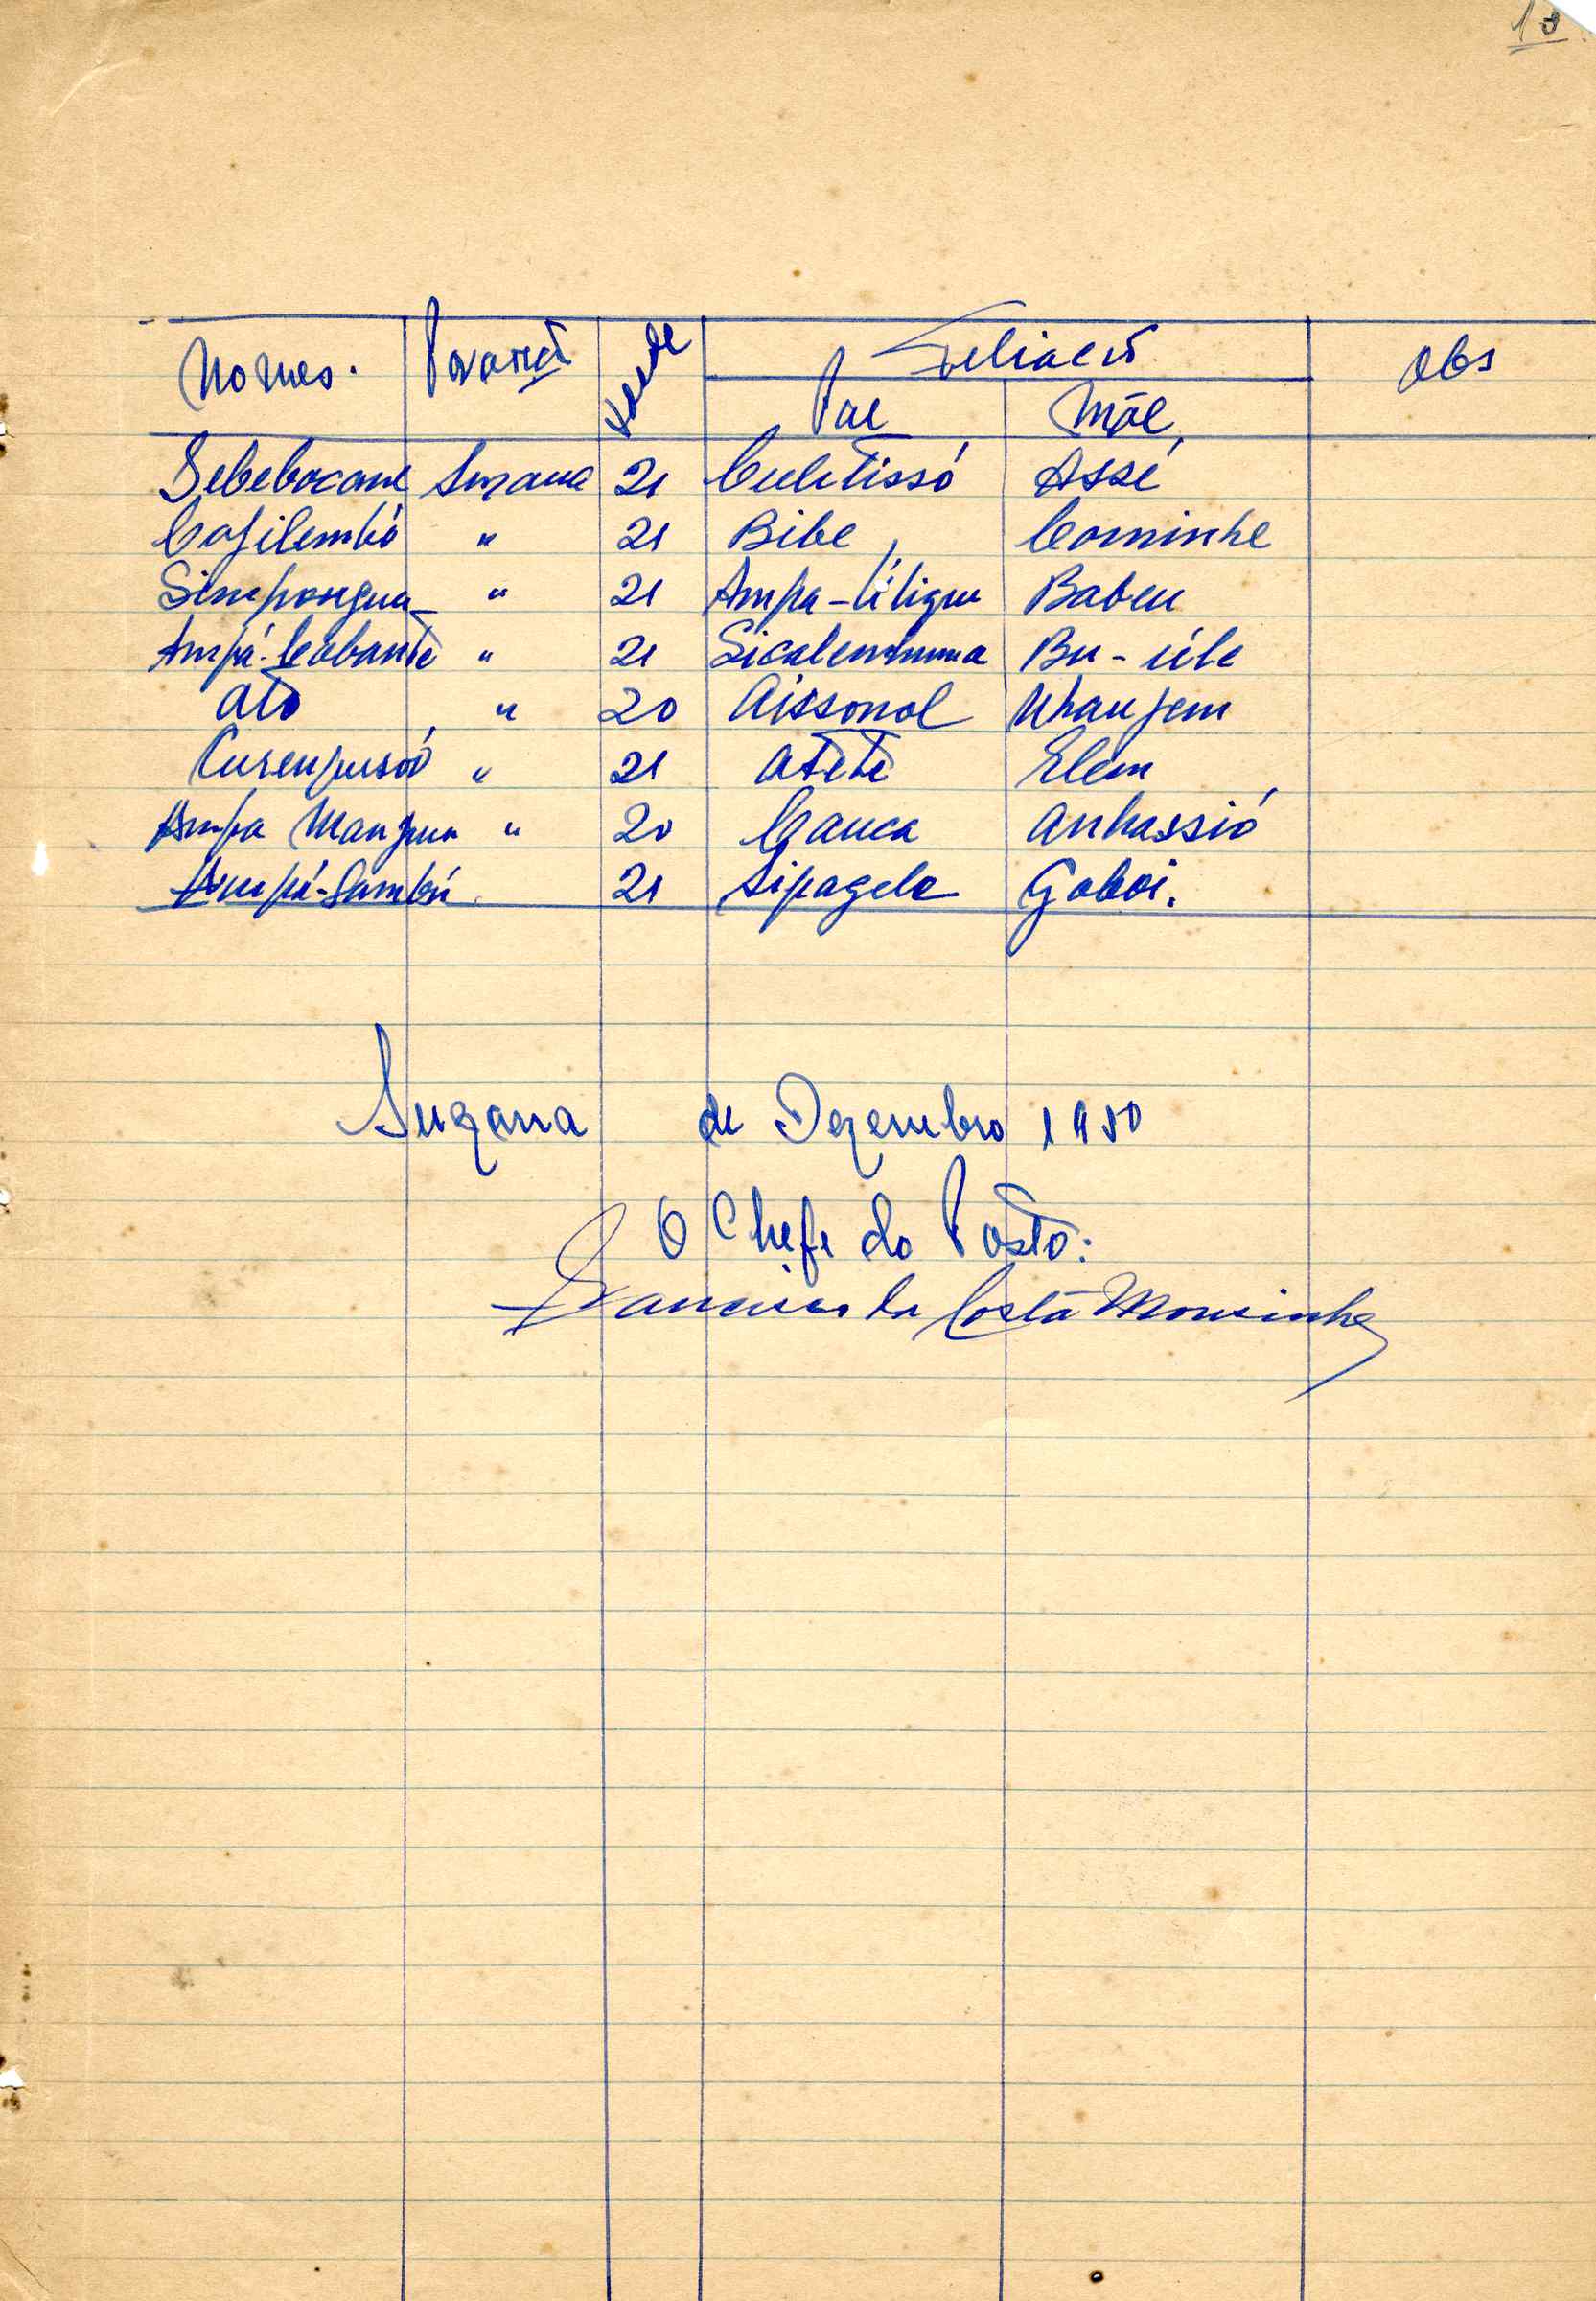 10
Nomes. Povoação Idade Filiação Obs
Pae Mãe
Sebebocane Suzana 21 Culetissó Assé
Cofilembó " 21 Bibe Cominhe
Simpongua " 21 Ampa-Iiligue Babeu
Ampá-Cobante " 21 Bu-úle
Ató " 20 Aissonol Nhaujem
" 21 Atete Elem
Ampa Manjua " 20 Canca Anhassió
Ampá-Sambú 21 Sipagele Goboi.
Suzana de Dezembro 1950
O Chefe do Posto:
Francisco da Costa Mousinho